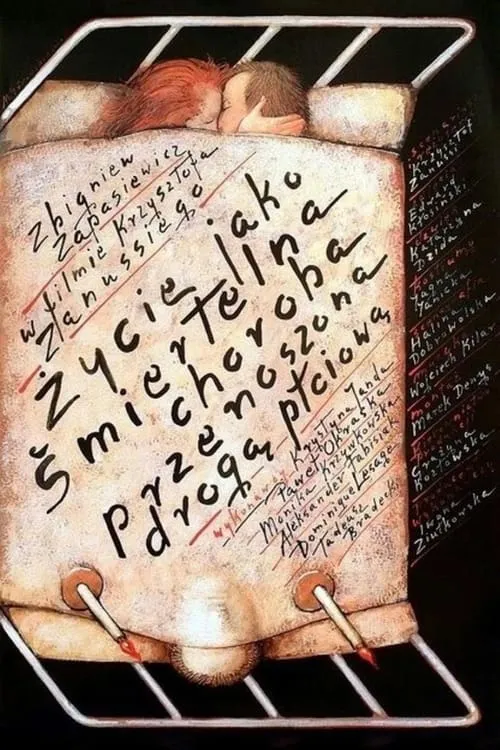 Zbigniew
Zapasiewicz
w filmie Krzysztofa
Zanussiego
Życie jako
śmiertelna
choroba
przenoszona
drogą płciową
wykonawcy Krystyna Janda
Paweł Okraska
Monika Krzywkowska
Aleksander Fabisiak
Dominique Lesage
Tadeusz
Bradecki
Krzysztof
Zanussi
Edward
Kłosiński
Jagna
Janicka
Halina
Dobrowolska
Wojciech Kilar
Marek Denys
Grażyna
Kozłowska
Iwona
Ziułkowska